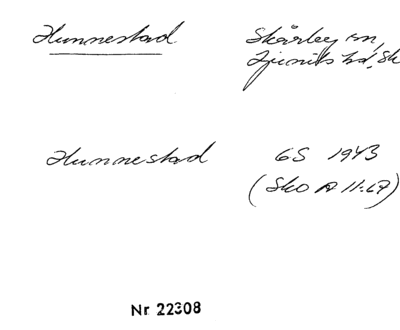 Hunnestad Skårby sn,
Ljunits hd, Sk
Hunnestad GS 1943
(Sko A 11:67)
Nr 22308